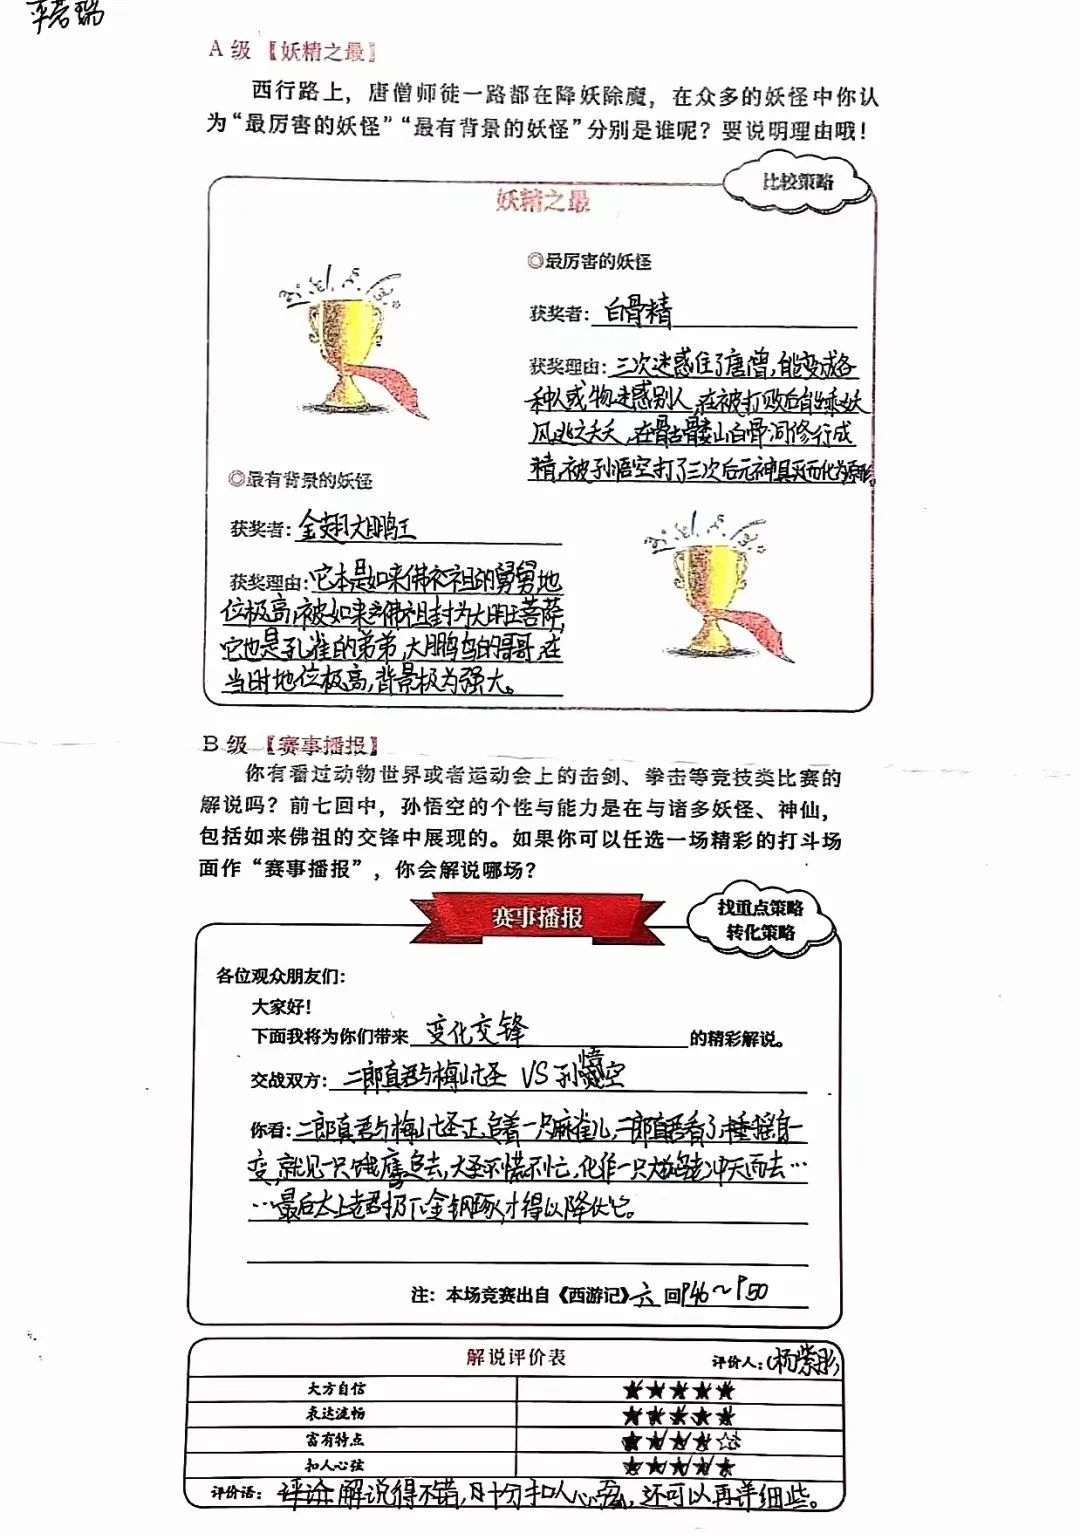 A 级 【妖精之最】
西行路上，唐僧师徒一路都在降妖除魔，在众多的妖怪中你认
为“最厉害的妖怪”“最有背景的妖怪”分别是谁呢？要说明理由哦！
比较策略
妖精之最
◎最厉害的妖怪
获奖者：白骨精
获奖理由：三次迷惑住了唐僧，能变成各
种人或物迷惑别人，在被打败后能乘妖
风逃之夭夭，在骷髅山白骨洞修行成
精，被孙悟空打了三次后元神具灭而化为原形。
◎最有背景的妖怪
获奖者：金翅大鹏王
获奖理由：它本是如来佛祖的舅舅地
位极高，被如来佛祖封为大明王菩萨，
它也是孔雀的弟弟，大鹏鸟的哥哥，在
当时地位极高，背景极为强大。
B 级 【赛事播报】
你有看过动物世界或者运动会上的击剑、拳击等竞技类比赛的
解说吗？前七回中，孙悟空的个性与能力是在与诸多妖怪、神仙，
包括如来佛祖的交锋中展现的。如果你可以任选一场精彩的打斗场
面作“赛事播报”，你会解说哪场？
赛事播报
找重点策略
转化策略
各位观众朋友们：
大家好！
下面我将为你们带来 变化交锋 的精彩解说。
交战双方：二郎真君与梅山七圣 VS 孙悟空
你看：二郎真君与梅山七圣正追着一只麻雀儿，二郎真君看了，摇身一
变，就见一只饿鹰追去，大圣不慌不忙，化作一只大鹚老冲天而去…
…最后太上老君扔下金钢琢，才得以降伏它。
注：本场竞赛出自《西游记》六 回P46～P50
解说评价表
评价人：杨紫彤
大方自信 ★★★★★
表达流畅 ★★★★★
富有特点 ★★★★☆
扣人心弦 ★★★★★
评价语：评论：解说得不错，十分扣人心弦，还可以再详细些。